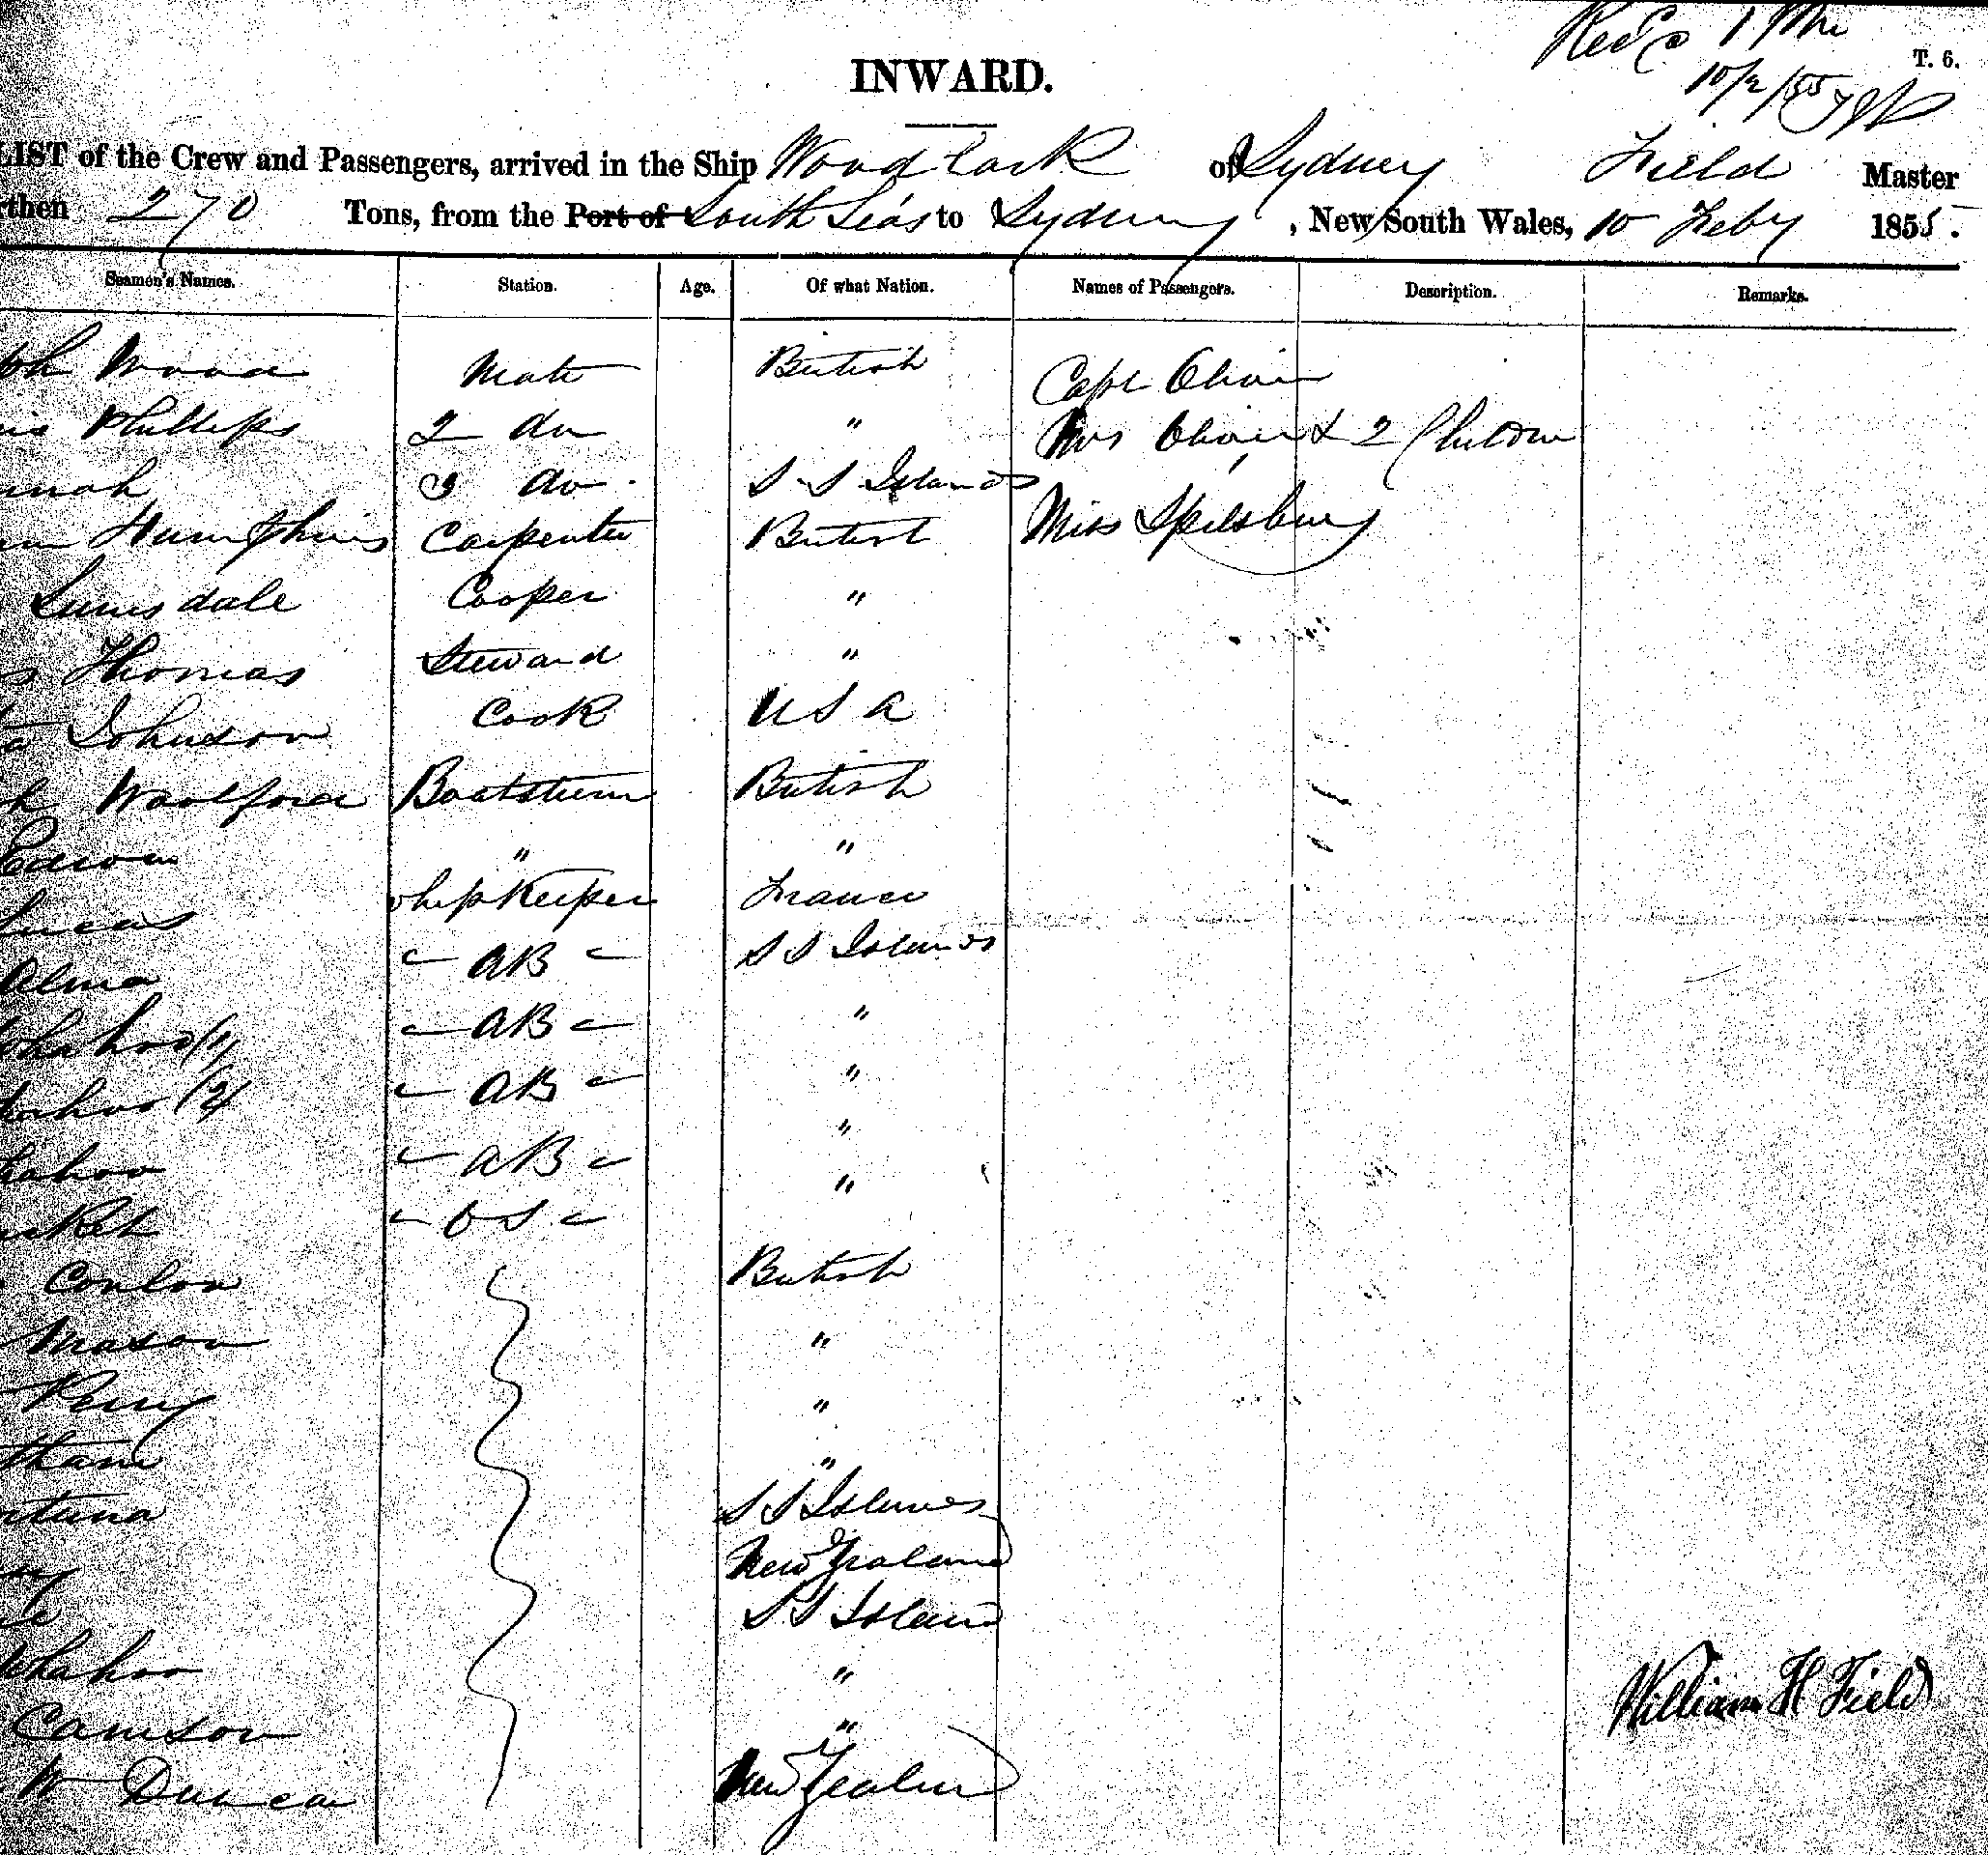 INWARD.
T. 6.
10/2/55
LIST of the Crew and Passengers, arrived in the Ship Woodlark of Sydney Field Master
rthen 270 Tons, from the Port of South Seas to Sydney, New South Wales, 10 Feby 1855.
Seamen's Names. Station. Age. Of what Nation. Names of Passengers. Description. Remarks.
ph Wood Mate British Capt Oliver
Phillips 2 do " Mrs Oliver & 2 Children
nnah 3 do S S Islands
Humphries Carpenter British Miss Spilsbury
Lumsdale Cooper "
s Thomas Steward "
Johnson Cook U S A
ph Woolford Boatsteerer British
Edwin " "
Lucas Shipkeeper France
Alma " AB " S S Islands
(1) " AB " "
(2) " AB " "
ahoo " AB " "
cket " OS " "
Conlon British
Mason "
Perry "
tham "
tuna S S Islands
New Zealand
S S Island
Whahoo "
Camson "
W Duncan New Zealand
William H Field